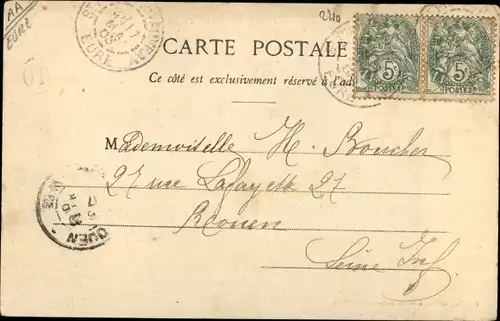 AA
EURE
2210
EURE
CARTE POSTALE
Ce côté est exclusivement réservé à l'ad
5
POSTES
5
POSTES
Mademoiselle H. Boucher
27 rue Lafayette 27
Rouen
Seine Inf
OUEN